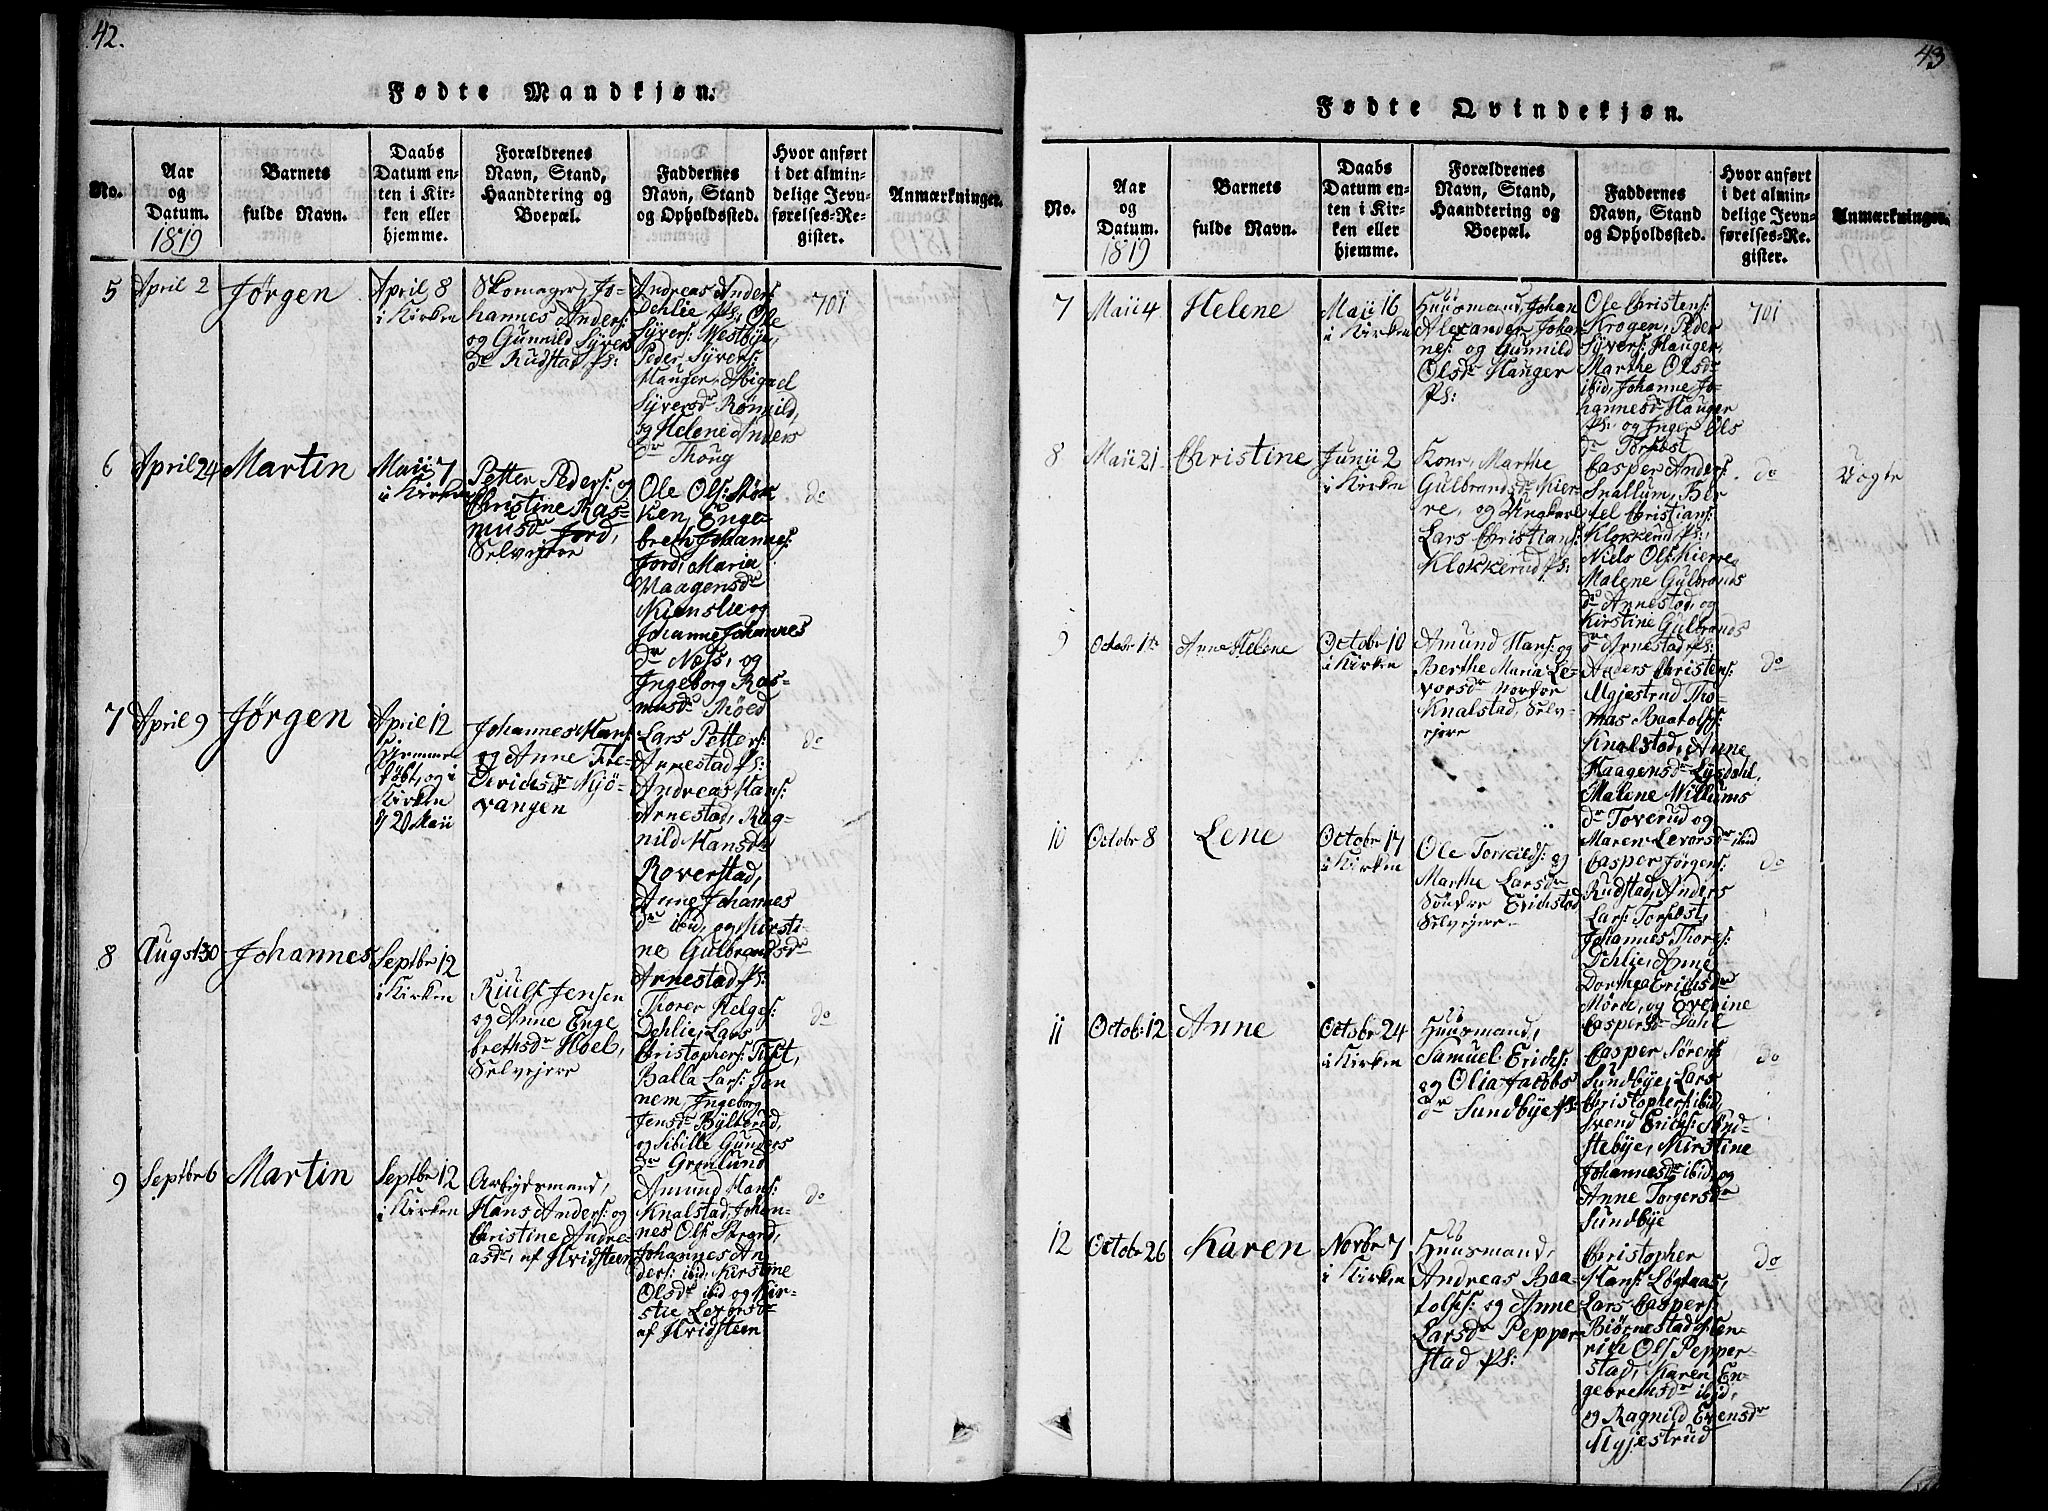 42.
Fødte Mandkjøn.
No.
Aar
og
Datum.
1819
Barnets
fulde Navn.
Daabs
Datum en-
ten i Kir-
ken eller
hjemme.
Forældrenes
Navn, Stand,
Haandtering og
Boepæl.
Faddernes
Navn, Stand
og Opholdssted.
Hvor anført
i det almin-
delige Jevn-
førelses-Re-
gister.
Anmærkninger.
5
April 2
Jørgen
April 8
i Kirken
Skomager, Jo-
hannes Anders:
og Gunnild Syvers
dr Rudstad, Ps:
Andreas Anders:
Dehlie Ps: Ole
Syvers: Westbye,
Peder Syvers:
Hauger, Abigael
Syversdr Romsild,
og Helene Anders
dr Thoug
701
6
April 24
Martin
Maii 7
i Kirken
Petter Peders: og
Christine Ras-
musdr Jord,
Selvejere
Ole Ols:
ken, Enge-
breth Johannes:
Jord, Maria
Haagensdr
Kienslie og
Johanne Johannes
dr Næss, og
Ingeborg Ras-
musdr
do
7
April 9
Jørgen
April 12
hiemme
døbt, og i
Kirken
d 20 Maii
Johannes Hans:
og Anne Fre-
drichsdr Kjø-
vangen
Lars Petters:
Arnestad Ps:
Andreas Hans:
Arnestad, Rag-
nild Hansdr
Roverstad,
Anne Johannes
dr ibid, og Kirsti-
ne Gulbrandsdr
Arnestad Ps:
do
8
Augst 30
Johannes
Septbr 12
i Kirken
Riulf Jensen
og Anne Enge
brethsdr Hoel,
Selvejere
Thorer Helges:
Dehlie, Lars
Christophers: Tuft,
Balla Lars: Jan
nem, Ingeborg
Jensdr Bylterud,
og Sibille Gunders
dr Grønlund
do
9
Septbr 6
Martin
Septbr 12
i Kirken
Arbejdsmand,
Hans Anders: og
Christine Andre-
asdr, af Hvidsteen
Amund Hans:
Knalstad, Johan-
nes Ols: Strand,
Johannes An
ders: ibid, Kirstine
Olsdr ibid og Kir-
stie Levorsdr
af Hvidsteen
do
43
Fødte Qvindekjøn.
No.
Aar
og
Datum.
1819
Barnets
fulde Navn.
Daabs
Datum en-
ten i Kir-
ken eller
hjemme.
Forældrenes
Navn, Stand,
Haandtering og
Boepæl.
Faddernes
Navn, Stand
og Opholdssted.
Hvor anført
i det almin-
delige Jevn-
førelses-Re-
gister.
Anmærkninger.
7
Maii 4
Helene
Maii 16
i Kirken
Huusmand, Johan
Alexander Johan
nes: og Gunnild
Olsdr Hauger
Ps:
Ole Christens:
Krogen, Peder
Syvers: Hauger
Marthe Olsdr
ibid, Johanne Jo-
hannesdr Hauger
Ps: og Inger Ols
dr Torsbst
701
8
Maii 21
Christine
Junii 2
i Kirken
Kone, Marthe
Gulbrandsdr Kier-
re, og Ungkarl
Lars Christians:
Klokkerud Ps:
Casper Anders:
Snallum, Ber
tel Christians:
Klokkerud Ps:,
Niels Ols: Kierre,
Malene Gulbrands
dr Arnestad, og
Kirstine Gulbrands
dr Arnestad Ps:
do
Uægte
9
Octobr 1ste
Anne Helene
Octobr 10
i Kirken
Amund Hans: og
Berthe Maria Le-
vorsdr nordre
Knalstad, Selv-
ejere
Anders Christens:
Mgjestrud, Tho-
mas Baatolfs:
Knalstad, Anne
Haagensdr Lysdahl,
Malene Willums
dr Toverud og
Maren Levorsdr ibid
do
10
Octobr 8
Lene
Octobr 17
i Kirken
Ole Torkilds: og
Marthe Larsdr
Søndre Erichstad
Selvejere
Casper Jørgens:
Rudstad, Anders
Lars: Torsbst,
Johannes Thores:
Dehlie, Anne
Dorthea Erichsdr
Mørch, og Everine
Caspersdr Dahl
do
11
Octob: 12
Anne
Octobr 24
i Kirken
Huusmand,
Samuel Erichs:
og Olia Jacobs
dr Sundbye Ps:
Casper Sørens:
Sundbye, Lars
Christophers: ibid,
Svend Erichs: Sund-
stebye, Kirstine
Johannesdr ibid, og
Anne Torgersdr
Sundbye
do
12
Octobr 26
Karen
Novbr 7
i Kirken
Huusmand,
Andreas Baa-
tolfs: og Anne
Larsdr Pepper-
stad Ps:
Christopher
Hans: Løgtaas,
Lars Caspers:
Biørnestad, Hen-
rich Ols: Pepper-
stad, Karen En-
gebrethsdr ibid,
og Ragnild Evensdr
Mgjestrud
do